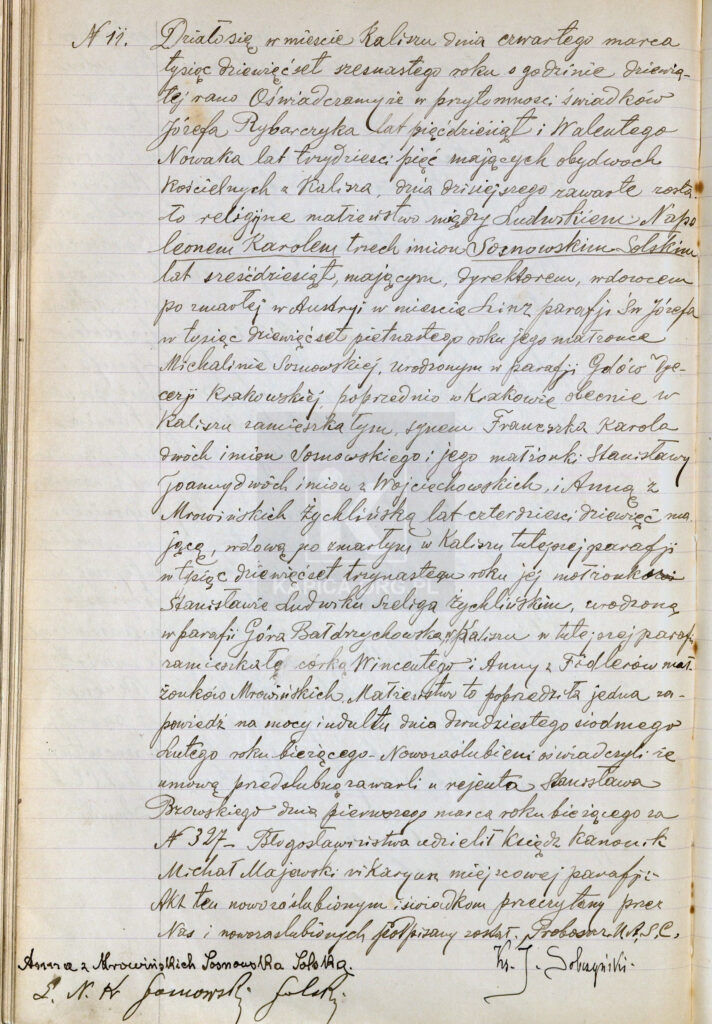 N 11. Działo się w mieście Kaliszu dnia czwartego marca
tysiąc dziewięćset szesnastego roku o godzinie dziewią-
tej rano Oświadczamy że w przytomności świadków
Józefa Rybarczyka lat pięćdziesiąt i Walentego
Nowaka lat trzydzieści pięć mających obydwoch
kościelnych z Kalisza, dnia dzisiejszego zawarte zosta
ło religijne małżeństwo między Ludwikiem Napo
leonem Karolem trzech imion Sosnowskim-Solskim
lat sześćdziesiąt, mającym, dyrektorem, wdowcem
po zmarłej w Austryi w mieście Linz parafji Św Józefa
w tysiąc dziewięćset piętnastego roku jego małżonce
Michalinie Sosnowskiej, urodzonym w parafji Gdów Dye-
cezji Krakowskiej poprzednio w Krakowie obecnie w
Kaliszu zamieszkałym, synem Franciszka Karola
dwóch imion Sosnowskiego i jego małżonki Stanisławy
Joanny dwóch imion z Wojciechowskich, i Anną z
Mrowińskich Żychlińską lat czterdzieści dziewięć ma
jącą, wdową po zmarłym w Kaliszu tutejszej parafji
w tysiąc dziewięćset trzynastego roku jej małżonku
Stanisławie Ludwiku Szeliga Żychlińskim, urodzoną
w parafji Góra Bałdrzychowska w Kaliszu w tutejszej parafji
zamieszkałą córką Wincentego i Anny z Fidlerów mał-
żonków Mrowińskich. Małżeństwo to poprzedziła jedna za-
powiedź na mocy indultu dnia dwudziestego siódmego
Lutego roku bieżącego - Nowozaślubieni oświadczyli że
umowę przedślubną zawarli u rejenta Stanisława
Bzowskiego dnia pierwszego marca roku bieżącego za
N 327 - Błogosławieństwa udzielił ksiądz kanonik
Michał Majewski wikaryusz miejscowej parafji-
Akt ten nowozaślubionym i świadkom przeczytany przez
Nas i nowozaślubionych podpisany został. Proboszcz U.S.C.
Anna z Mrowińskich Sosnowska Solska.
Ks. J. Sobczyński.
L. N. K Sosnowski Solski
KSIĘGA.ORG.PL